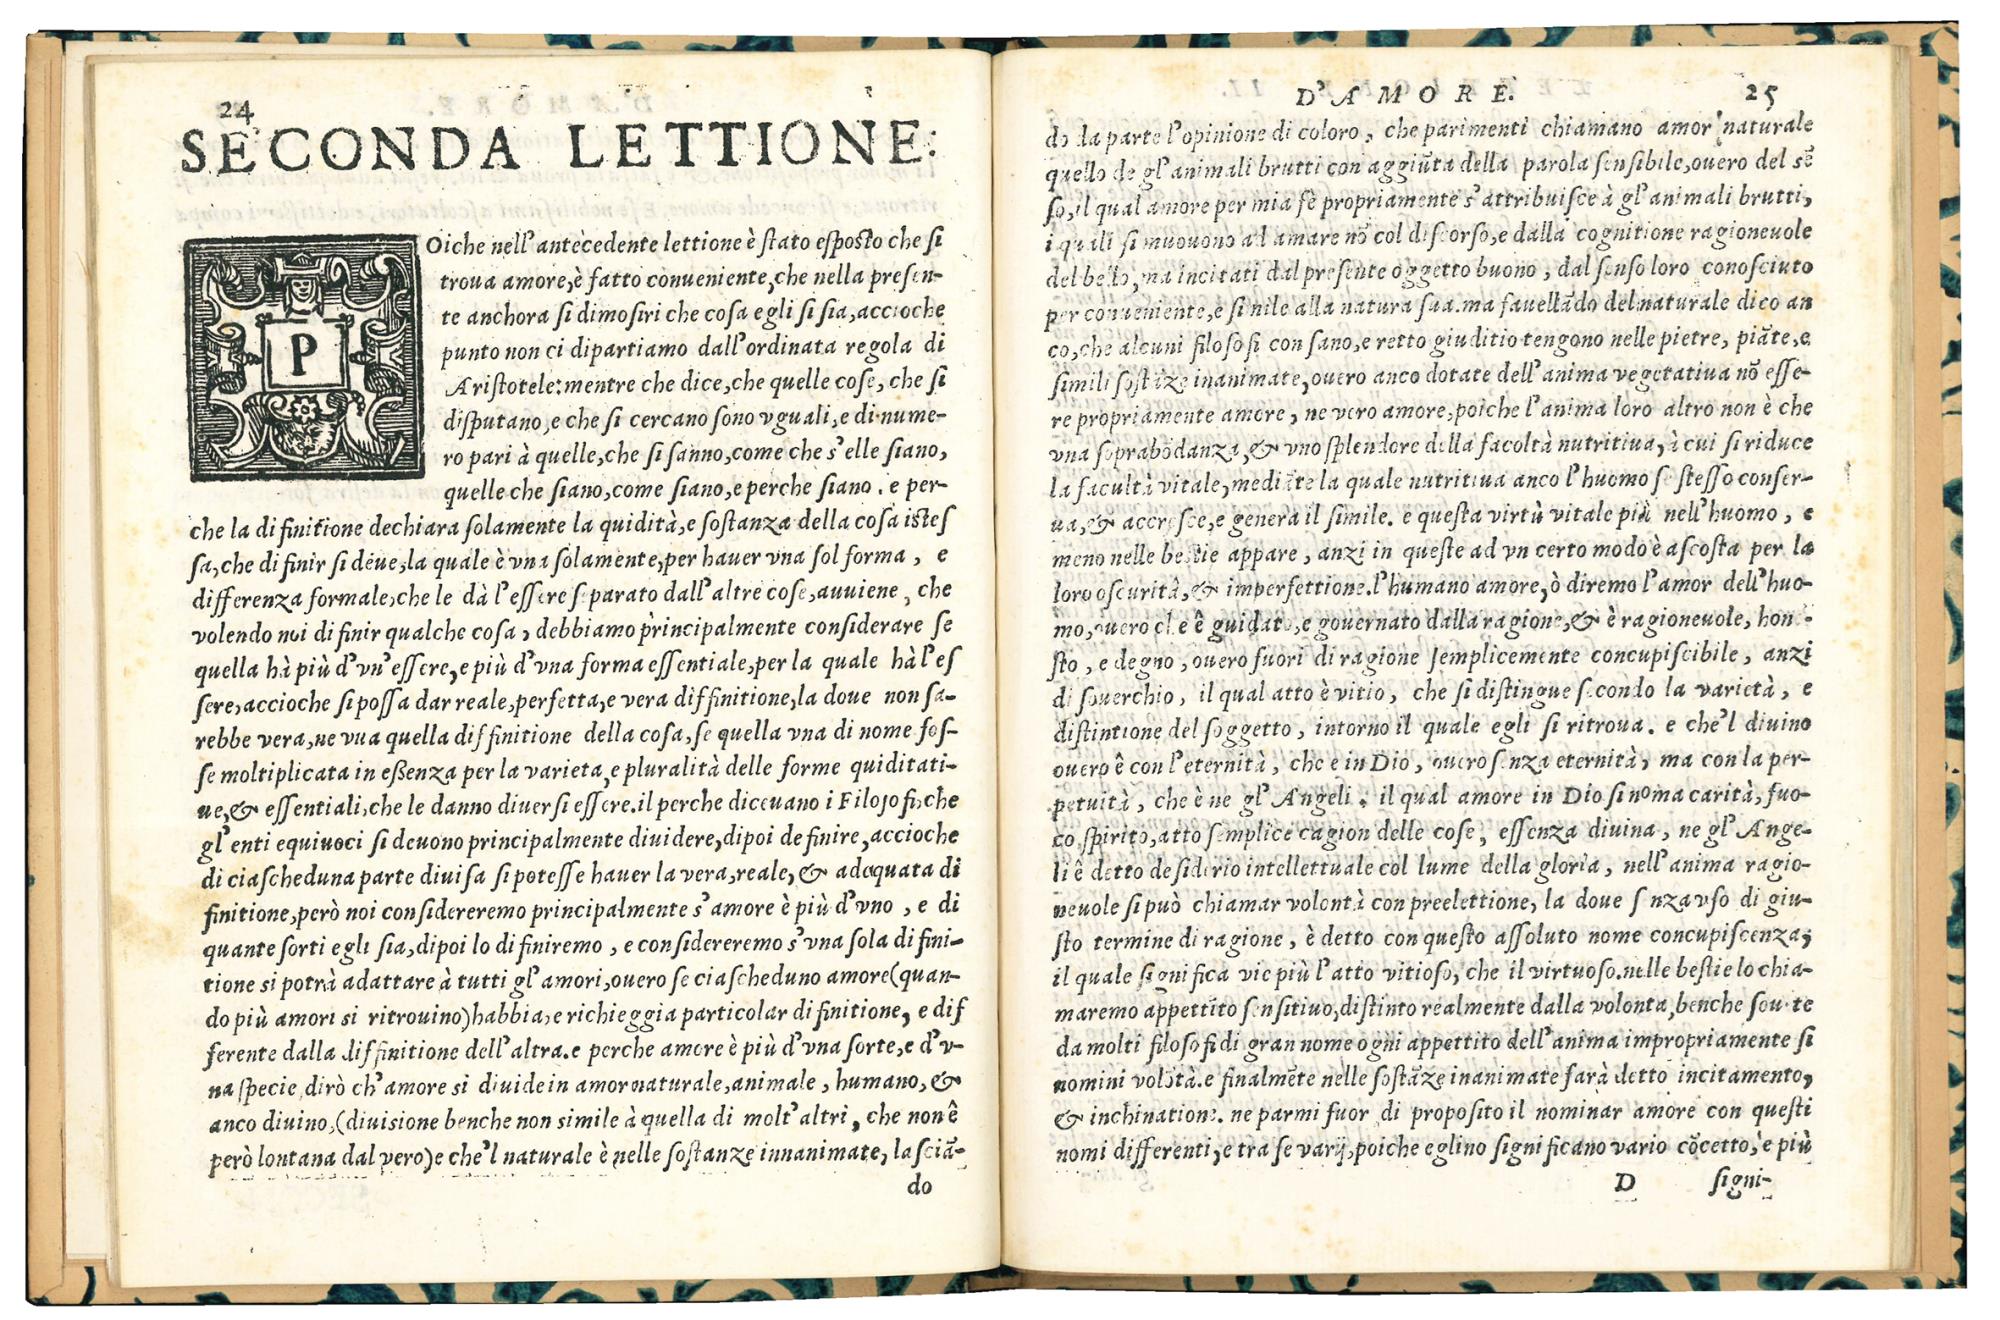 24
SECONDA LETTIONE.
POiche nell'antecedente lettione è stato esposto che si
troua amore, è fatto conueniente, che nella presen-
te anchora si dimostri che cosa egli si sia, accioche
punto non ci dipartiamo dall'ordinata regola di
Aristotele: mentre che dice, che quelle cose, che si
disputano, e che si cercano sono vguali, e di nume-
ro pari à quelle, che si sanno, come che s'elle siano,
quelle che siano, come siano, e perche siano. e per-
che la difinitione dechiara solamente la quidità, e sostanza della cosa istes
sa, che difinir si deue, la quale è vna solamente, per hauer vna sol forma, e
differenza formale, che le dà l'essere separato dall'altre cose, auuiene, che
volendo noi difinir qualche cosa, debbiamo principalmente considerare se
quella hà più d'vn'essere, e più d'vna forma essentiale, per la quale hà l'es
sere, accioche si possa dar reale, perfetta, e vera diffinitione, la doue non sa-
rebbe vera, ne vna quella diffinitione della cosa, se quella vna di nome fos-
se moltiplicata in essenza per la varieta, e pluralità delle forme quiditati-
ue, & essentiali, che le danno diuersi essere. il perche diceuano i Filosofi, che
gl'enti equiuoci si deuono principalmente diuidere, dipoi definire, accioche
di ciascheduna parte diuisa si potesse hauer la vera, reale, & adequata di
finitione, però noi considereremo principalmente s'amore è più d'vno, e di
quante sorti egli sia, dipoi lo difiniremo, e considereremo s'vna sola difini-
tione si potrà adattare à tutti gl'amori, ouero se ciascheduno amore (quan-
do più amori si ritrouino) habbia, e richieggia particolar difinitione, e dif
ferente dalla diffinitione dell'altra. e perche amore è più d'vna sorte, e d'v-
na specie, dirò ch'amore si diuide in amor naturale, animale, humano, &
anco diuino, (diuisione benche non simile à quella di molt'altri, che non è
però lontana dal vero) e che'l naturale è nelle sostanze innanimate, lasciā-
do
D'AMORE. 25
do da parte l'opinione di coloro, che parimenti chiamano amor naturale
quello de gl'animali brutti con aggiūta della parola sensibile, ouero del sē
so, il qual amore per mia fè propriamente s'attribuisce à gl'animali brutti,
i quali si muouono ad amare nō col discorso, e dalla cognitione ragioneuole
del bello, ma incitati dal presente oggetto buono, dal senso loro conosciuto
per conueniente, e simile alla natura sua. ma fauellādo del naturale dico an
co, che alcuni filosofi con sano, e retto giuditio tengono nelle pietre, piāte, e
simili sostāze inanimate, ouero anco dotate dell'anima vegetatiua nō esse-
re propriamente amore, ne vero amore, poiche l'anima loro altro non è che
vna soprabōdanza, & vno splendore della facoltà nutritiua, à cui si riduce
la facultà vitale, mediāte la quale nutritiua anco l'huomo se stesso conser-
ua, & accresce, e genera il simile. e questa virtù vitale più nell'huomo, e
meno nelle bestie appare, anzi in queste ad vn certo modo è ascosta per la
loro oscurità, & imperfettione. l'humano amore, ò diremo l'amor dell'huo-
mo, ouero che è guidato, e gouernato dalla ragione, & è ragioneuole, hone-
sto, e degno, ouero fuori di ragione semplicemente concupiscibile, anzi
di souerchio, il qual atto è vitio, che si distingue secondo la varietà, e
distintione del soggetto, intorno il quale egli si ritroua. e che'l diuino
ouero è con l'eternità, che è in Dio, ouero senza eternità, ma con la per-
petuità, che è ne gl'Angeli. il qual amore in Dio si noma carità, fuo-
co, spirito, atto semplice cagion delle cose, essenza diuina, ne gl'Ange-
li è detto desiderio intellettuale col lume della gloria, nell'anima ragio-
neuole si può chiamar volontà con preelettione, la doue senza vso di giu-
sto termine di ragione, è detto con questo assoluto nome concupiscenza,
il quale significa vie più l'atto vitioso, che il virtuoso. nelle bestie lo chia-
maremo appettito sensitiuo, distinto realmente dalla volonta, benche souente
da molti filosofi di gran nome ogni appettito dell'anima impropriamente si
nomini volōtà. e finalmēte nelle sostāze inanimate sarà detto incitamento,
& inchinatione. ne parmi fuor di proposito il nominar amore con questi
nomi differenti, e tra se varij, poiche eglino significano vario cōcetto, e più
D signi-